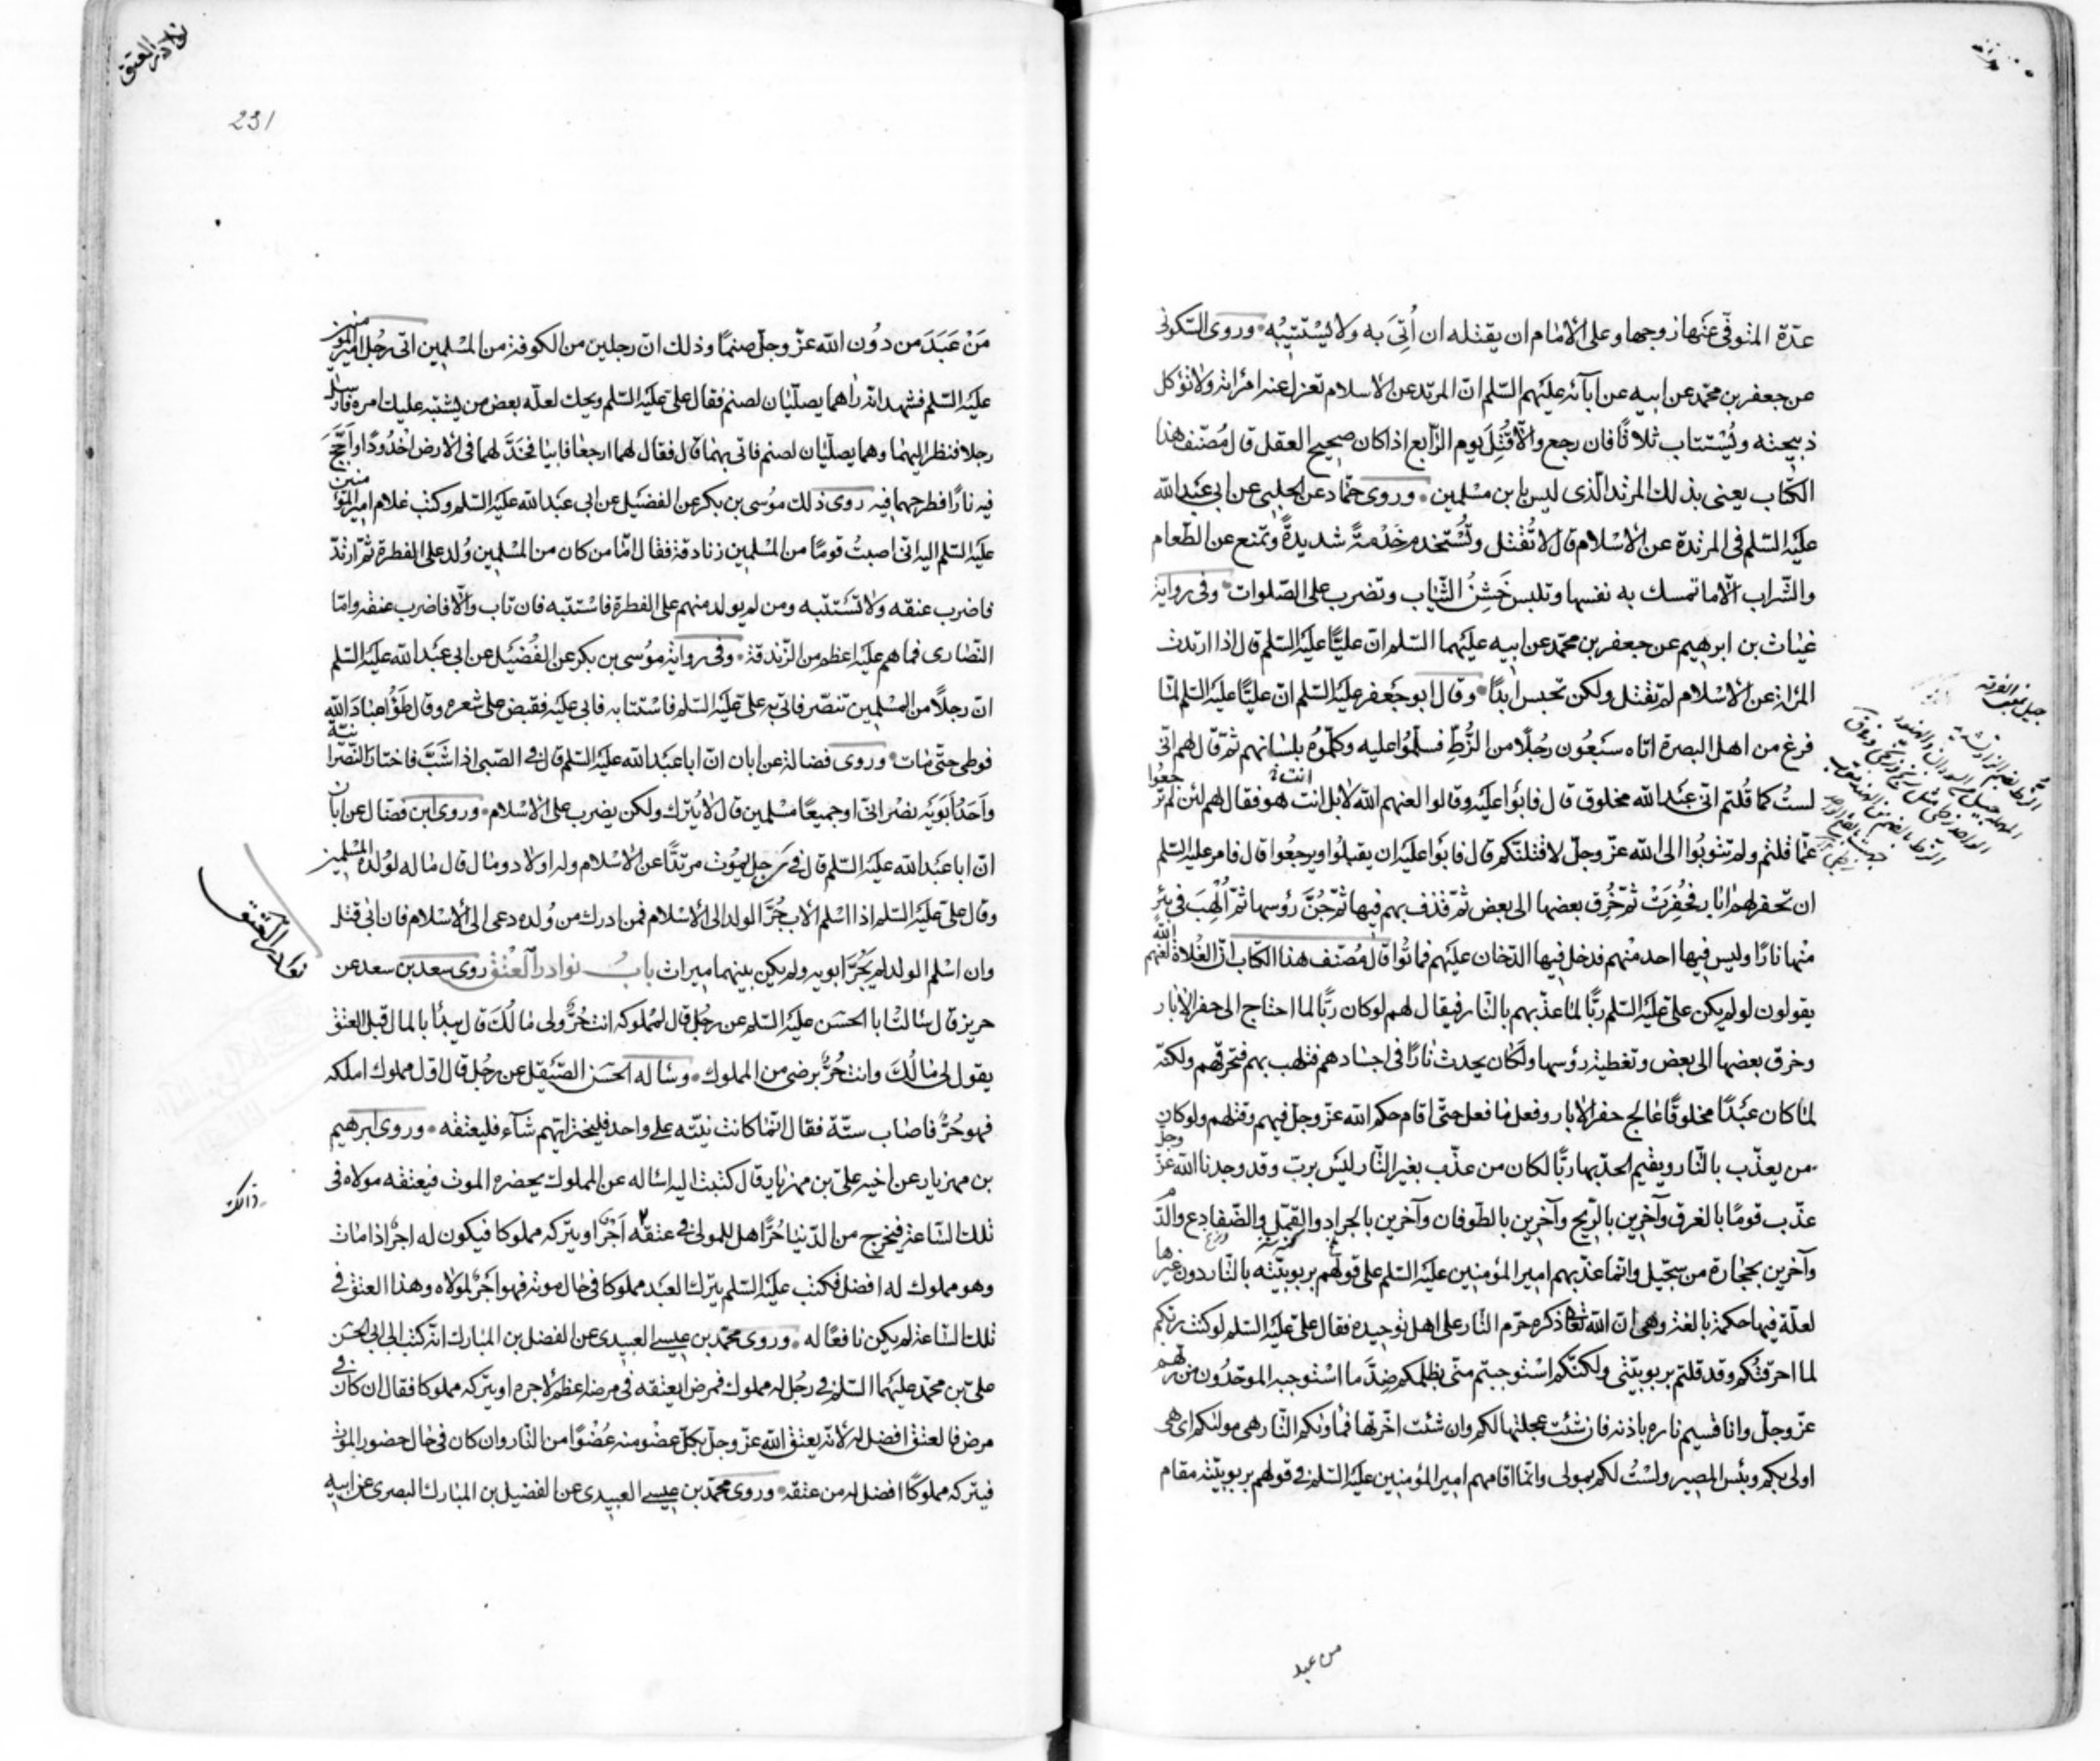 عدّة المتوفّى عنها زوجها وعلى الامام ان يقتله ان أُتِىَ به ولا يسْتتيبُه وروى السّكونى
عن جعفر بن محمّد عن ابيه عن آبائه عليهم السّلم انّ المرتد عن الاسلام تعزل عنه امرأته ولا تؤكل
ذبيحته ويُسْتتاب ثلاثًا فان رجع والّا قُتِلَ يوم الرّابع اذا كان صحيح العقل قال مُصنّف هذا
الكتاب يعنى بذلك المرتد الّذى ليس بابن مسْلمين وروى حمّاد عن الحلبى عن ابى عبد الله
عليه السّلم فى المرتدة عن الاسْلام قال لا تُقتل وتُسْتخدم خدْمةً شديدةً وتمنع عن الطّعام
والشّراب الّا ما تمسك به نفسها وتلبس خَشِنُ الثّياب وتضرب على الصّلوات وفى رواية
غياث بن ابرهيم عن جعفر بن محمّد عن ابيه عليهما السّلم انّ عليًّا عليه السّلم قال اذا ارتدت
المرأة عن الاسْلام لم تقتل ولكن تحبس ابدًا وقال ابو جعفر عليه السّلم انّ عليًّا عليه السّلم لمّا
فرغ من اهل البصرة اتاه سَبعُون رجُلًا من الزُّطِّ فسلّمُوا عليه وكلّموُه بلسانهم ثمّ قال لهم انّى
لستُ كما قُلتم انّى عبد الله مخلوق قال فابَوْا عليه وقالوا لعنهم الله لا بل انت انت هو فقال لهم لئن لم ترجعُوا
عمّا قلتم ولم تتوبُوا الى الله عزّ وجلّ لاقتلنّكم قال فابَوْا عليه ان يقبلُوا ويرجعُوا قال فامر عليه السّلم
ان تحفر لهم ابار فحُفِرَتْ ثمّ خُرِق بعضها الى بعض ثمّ قذف بهم فيها ثمّ جُنَّ رؤسها ثمّ أُلْهِبَ فى بئر
منها نارًا وليس فيها احد منْهم فدخل فيها الدّخان عليهم فماتُوا قال مُصنّف هذا الكتاب انّ الغُلاة لعنهم الله
يقولون لو لم يكن علىّ عليه السّلم ربًّا لما عذّبهم بالنّار فيقال لهم لو كان ربًّا لما احتاج الى حفر الابار
وخرق بعضها الى بعض وتغطية رؤسها ولكان يحدث نارًا فى اجسادهم فتلهب بهم فتحرقهم ولكنّه
لمّا كان عبْدًا مخلوقًا عالج حفر الابار وفعل ما فعل حتّى اقام حكم الله عزّ وجلّ فيهم وقتلهم ولو كان
من يعذّب بالنّار ويقيم الحدّ بها ربًّا لكان من عذّب بغير النّار ليس بربّ وقد وجدنا الله عزّ وجلّ
عذّب قومًا بالغرق وآخرين بالرّيح وآخرين بالطّوفان وآخرين بالجراد والقمّل والضّفادع والدّم
وآخرين بحجارة من سجّيل وانّما عذّبهم امير المؤمنين عليه السّلم على قولهم بربوبيّته بالنّار دون غيرها
لعلّة فيها حكمة بالغة وهى انّ الله تعالى ذكره حرّم النّار على اهل توحيده فقال علىّ عليه السّلم لو كنت ربّكم
لما احرقتُكم وقد قلتم بربوبيّتى ولكنّكم اسْتوجبتم منّى بظلمكم ضِدَّ ما اسْتوجبه الموحّدُون من ربّهم
عزّ وجلّ وانا قسيم ناره باذنه فان شئت عجلتها لكم وان شئت اخّرتها فمأويكم النّار هى مولىكم اى هى
اولى بكم وبئس المصير ولسْتُ لكم بمولى وانّما اقامهم امير المؤمنين عليه السّلم فى قولهم بربوبيّته مقام
من عبد
نوادر العتق
231
مَنْ عَبَدَ من دوُن الله عزّ وجلّ صنمًا وذلك انّ رجلين من الكوفة من المسْلمين اتى رجُل امير المؤمنين
عليه السّلم فشهد انّه راهما يصلّيان لصنم فقال علىّ عليه السّلم ويحك لعلّه بعض من يشتبه عليك امره فارسل
رجلا فنظر اليهما وهما يصلّيان لصنم فاتى بهما قال فقال لهما ارجعا فابيا فخدَّ لهما فى الارض اخْدُودًا واَجَّجَ
فيه نارًا فطرحهما فيه روى ذلك موُسى بن بكر عن الفضيل عن ابى عبد الله عليه السّلم وكتب غلام امير المؤمنين
عليه السّلم اليه انّى اصبتُ قومًا من المسْلمين زنادقة فقال امّا من كان من المسْلمين وُلد على الفطرة ثمّ ارتدّ
فاضرب عنقه ولا تسْتتبه ومن لم يولد منهم على الفطرة فاسْتتبه فان تاب والّا فاضرب عنقه وامّا
النّصارى فما هم عليه اعظم من الزّندقة وفى رواية موُسى بن بكر عن الفُضيل عن ابى عبد الله عليه السّلم
انّ رجلًا من المسْلمين تنصّر فاتى به علىّ عليه السّلم فاسْتتابه فابى عليه فقبض على شعره وقال طَؤُا عبادَ الله
فوطى حتّى مات وروى فضالة عن ابان انّ ابا عبد الله عليه السّلم قال فى الصّبى اذا شبَّ فاختار النّصرانيّة
واَحدُ اَبَوَيْه نصْرانى او جميعًا مسْلمين قال لا يُترك ولكن يضرب على الاسْلام وروى ابن فضّال عن ابان
انّ ابا عبد الله عليه السّلم قال فى رجل يموُت مرتدًّا عن الاسْلام وله اولاد ومال قال ماله لوُلده المسْلمين
وقال علىّ عليه السّلم اذا اسْلم الاب جُرَّ الولد الى الاسْلام فمن ادرك من وُلده دعى الى الاسْلام فان ابى قتل
وان اسْلم الولد لم يَجُرَّ ابويه ولم يكن بينهما ميراث بابُ نوادر العتْق روى سعد بن سعد عن
حريز قال سألتُ ابا الحسَن عليه السّلم عن رجُل قال لمملوكه انت حُرٌّ ولى مالُكَ قال يبدأ بالمال قبل العتق
يقول لى مالُكَ وانت حُرٌّ برضى من المملوك وسأله الحسَن الصّيْقل عن رجُل قال اوّل مملوك املكه
فهو حُرٌّ فاصاب ستّة فقال انّما كانت نيّته على واحد فليختر ايّهم شآء فليعتقه وروى ابرهيم
بن مهزيار عن اخيه علىّ بن مهزيار قال كتبت اليه اسأله عن المملوك يحضره الموت فيعتقه مولاه فى
تلك السّاعة فيخرج من الدّنيا حُرًّا هل للمولى فى عتقه اَجْر او يتركه مملوكا فيكون له اجر اذا مات
وهو مملوك له افضل فكتب عليه السّلم يترك العبْد مملوكا فى حال موته فهو اَجْر لمولاه وهذا العتق فى
تلك السّاعة لم يكن نافعًا له وروى محمّد بن عيسى العبيدى عن الفضل بن المبارك انّه كتب الى ابى الحسَن
علىّ بن محمّد عليهما السّلم فى رجُل له مملوك فمرض ايعتقه فى مرضه اعظم لاجره او يتركه مملوكا فقال ان كان فى
مرض فالعتق افضل له لانّه يعتق الله عزّ وجلّ بكلّ عضو منه عُضوًا من النّار وان كان فى حال حضور الموت
فيتركه مملوكًا افضل له من عتقه وروى محمّد بن عيسى العبيدى عن الفضيل بن المبارك البصرى عن ابيه
نوادر العتق